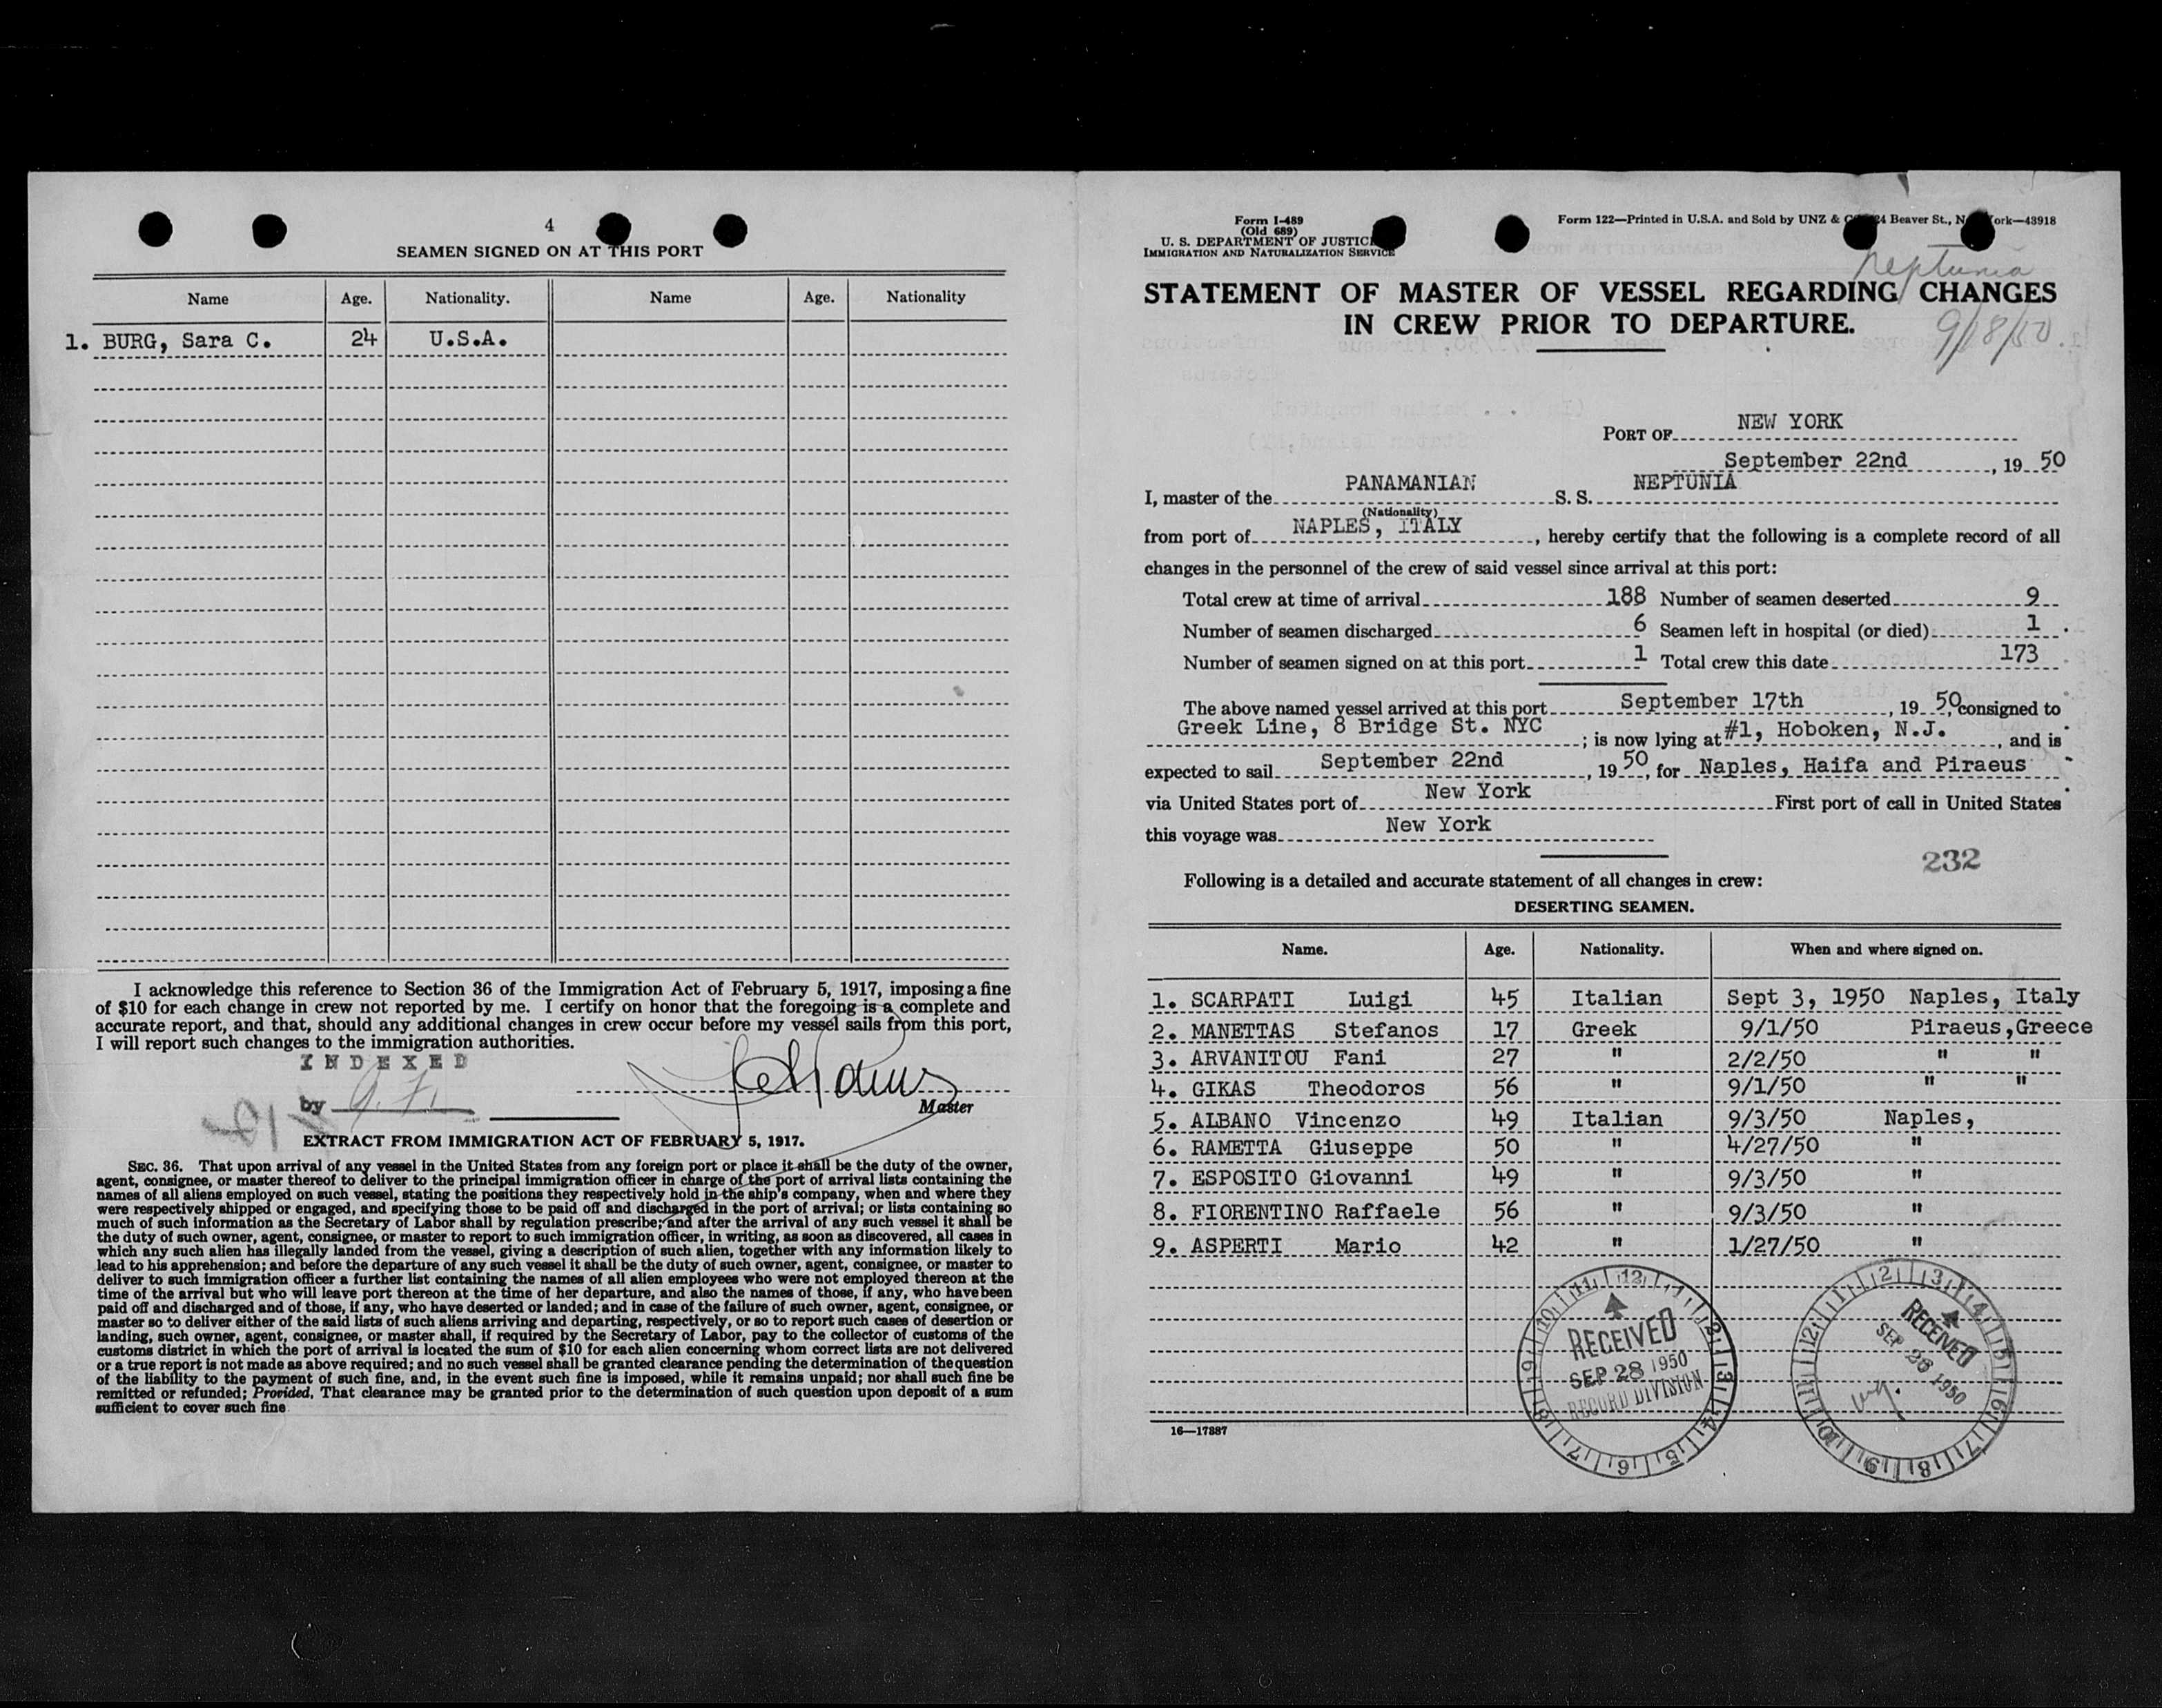 4
SEAMEN SIGNED ON AT THIS PORT
Name Age. Nationality. Name Age. Nationality
1. BURG, Sara C. 24 U.S.A.
I acknowledge this reference to Section 36 of the Immigration Act of February 5, 1917, imposing a fine
of $10 for each change in crew not reported by me. I certify on honor that the foregoing is a complete and
accurate report, and that, should any additional changes in crew occur before my vessel sails from this port,
I will report such changes to the immigration authorities.
INDEXED
by
Master
EXTRACT FROM IMMIGRATION ACT OF FEBRUARY 5, 1917.
SEC. 36. That upon arrival of any vessel in the United States from any foreign port or place it shall be the duty of the owner,
agent, consignee, or master thereof to deliver to the principal immigration officer in charge of the port of arrival lists containing the
names of all aliens employed on such vessel, stating the positions they respectively hold in the ship's company, when and where they
were respectively shipped or engaged, and specifying those to be paid off and discharged in the port of arrival; or lists containing so
much of such information as the Secretary of Labor shall by regulation prescribe; and after the arrival of any such vessel it shall be
the duty of such owner, agent, consignee, or master to report to such immigration officer, in writing, as soon as discovered, all cases in
which any such alien has illegally landed from the vessel, giving a description of such alien, together with any information likely to
lead to his apprehension; and before the departure of any such vessel it shall be the duty of such owner, agent, consignee, or master to
deliver to such immigration officer a further list containing the names of all alien employees who were not employed thereon at the
time of the arrival but who will leave port thereon at the time of her departure, and also the names of those, if any, who have been
paid off and discharged and of those, if any, who have deserted or landed; and in case of the failure of such owner, agent, consignee, or
master so to deliver either of the said lists of such aliens arriving and departing, respectively, or so to report such cases of desertion or
landing, such owner, agent, consignee, or master shall, if required by the Secretary of Labor, pay to the collector of customs of the
customs district in which the port of arrival is located the sum of $10 for each alien concerning whom correct lists are not delivered
or a true report is not made as above required; and no such vessel shall be granted clearance pending the determination of the question
of the liability to the payment of such fine, and, in the event such fine is imposed, while it remains unpaid; nor shall such fine be
remitted or refunded; Provided, That clearance may be granted prior to the determination of such question upon deposit of a sum
sufficient to cover such fine
Form I-489
(Old 689)
U. S. DEPARTMENT OF JUSTICE
IMMIGRATION AND NATURALIZATION SERVICE
Form 122—Printed in U.S.A. and Sold by UNZ & 24 Beaver St., N ork—43918
Neptunia
STATEMENT OF MASTER OF VESSEL REGARDING CHANGES
IN CREW PRIOR TO DEPARTURE.
9/18/50
PORT OF NEW YORK
September 22nd, 19 50
I, master of the PANAMANIAN S. S. NEPTUNIA
(Nationality)
from port of NAPLES, ITALY, hereby certify that the following is a complete record of all
changes in the personnel of the crew of said vessel since arrival at this port:
Total crew at time of arrival 188 Number of seamen deserted 9
Number of seamen discharged 6 Seamen left in hospital (or died) 1
Number of seamen signed on at this port 1 Total crew this date 173
The above named vessel arrived at this port September 17th, 19 50, consigned to
Greek Line, 8 Bridge St. NYC; is now lying at #1, Hoboken, N.J., and is
expected to sail September 22nd, 19 50, for Naples, Haifa and Piraeus
via United States port of New York First port of call in United States
this voyage was New York
232
Following is a detailed and accurate statement of all changes in crew:
DESERTING SEAMEN.
Name. Age. Nationality. When and where signed on.
1. SCARPATI Luigi 45 Italian Sept 3, 1950 Naples, Italy
2. MANETTAS Stefanos 17 Greek 9/1/50 Piraeus, Greece
3. ARVANITOU Fani 27 " 2/2/50 " "
4. GIKAS Theodoros 56 " 9/1/50 " "
5. ALBANO Vincenzo 49 Italian 9/3/50 Naples,
6. RAMETTA Giuseppe 50 " 4/27/50 "
7. ESPOSITO Giovanni 49 " 9/3/50 "
8. FIORENTINO Raffaele 56 " 9/3/50 "
9. ASPERTI Mario 42 " 1/27/50 "
RECEIVED
SEP 28 1950
RECORD DIVISION
RECEIVED
SEP 28 1950
16—17887